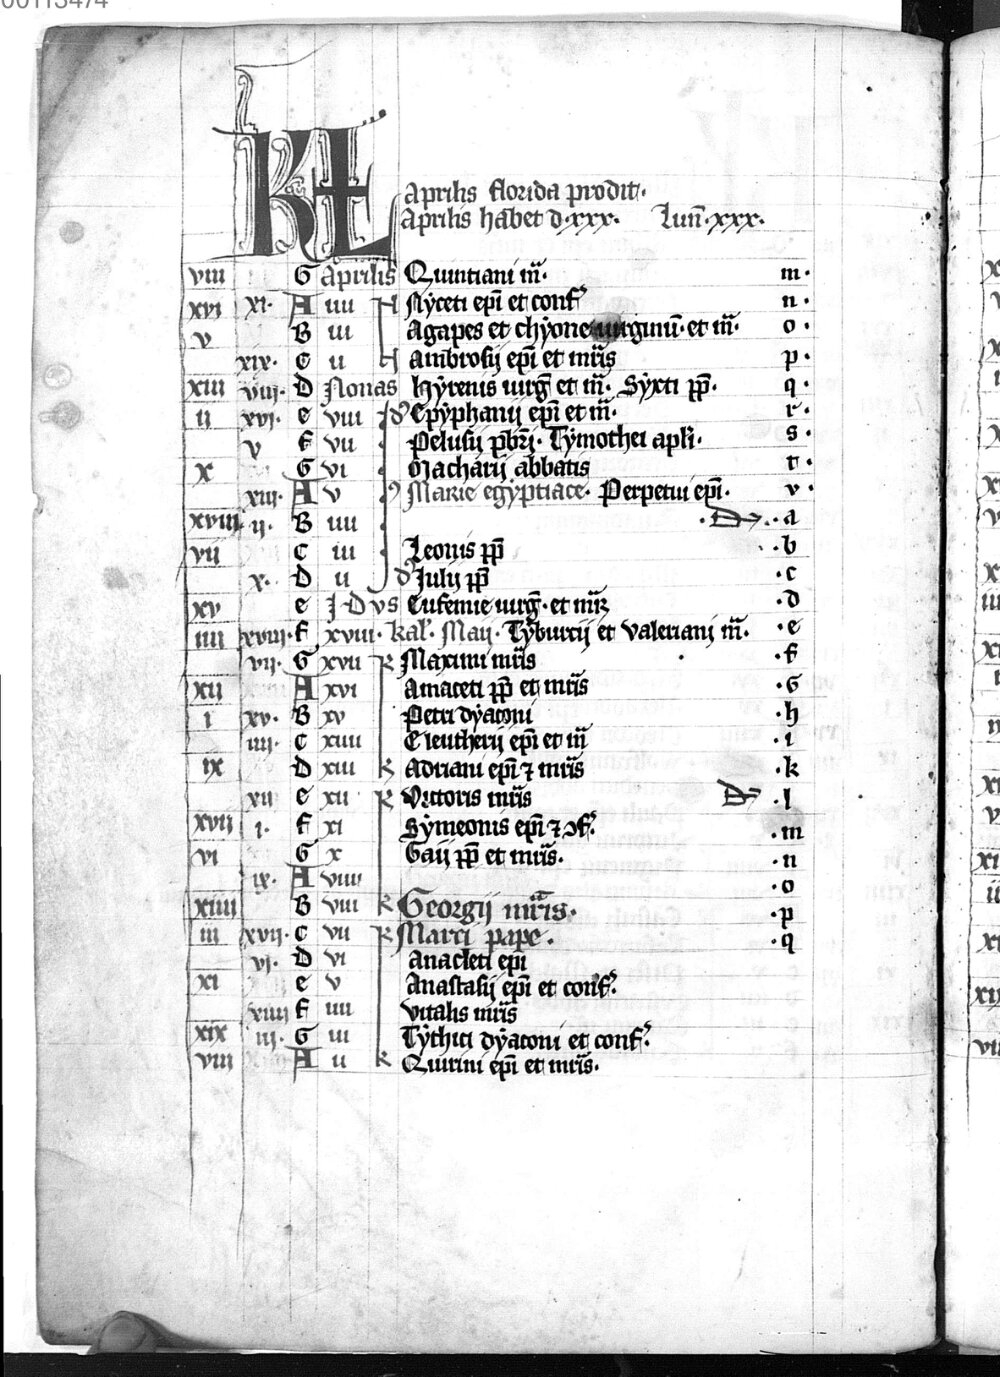 00113474
KL
Aprilis florida prodit.
Aprilis habet d. xxx. Lun. xxx.
viii G Aprilis Quintiani m̄. m.
xvi xi. A iiii N Nyceti epī et conf. n.
v B iii Agapes et chyone virginū. et m̄. o.
xix. C ii Ambrosij epī et mr̄is p.
xiii viii. D Nonas Hyrenis virg̅ et m̄. Syxti pp̄. q.
ii xvi. e viii Epyphanij epī et m̄. r.
v F vii Pelusij pb̄ri. Tymothei apl̄i. s.
x G vi Macharij abbatis t.
xiii. A v Marie egyptiace. Perpetui epī. v.
xviii ii. B iiii .D. a
vii C iii Leonis pp̄ .b
x. D ii Julij pp̄ .c
xv e JDvs Eufemie virg̅. et m̄r .d
iiii xviii. F xviii. kal. Maij. Tyburcij et valeriani m̄. .e
vii. G xvii Maximi mr̄is .f
xii A xvi Anaceti pp̄ et mr̄is .G
i xv. B xv Petri dyaconi .h
iiii. C xiiii Eleutherij epī et m̄ .i
ix D xiii Adriani epī ⁊ mr̄is .k
xii e xii Victoris mr̄is D .l
xvii i. F xi Symeonis epī ⁊ ↄf. .m
vi G x Gaij pp̄ et mr̄is. .n
ix. A viiii .o
xiiii B viii Georgij mr̄is. .p
iii xvii. C vii Marci pape. .q
vi. D vi Anacleti epī
xi e v Anastasij epī et conf.
xiiii F iiii vitalis mr̄is
xix iii. G iii Tythici dyaconi et conf.
viii A ii Quirini epī et mr̄is.